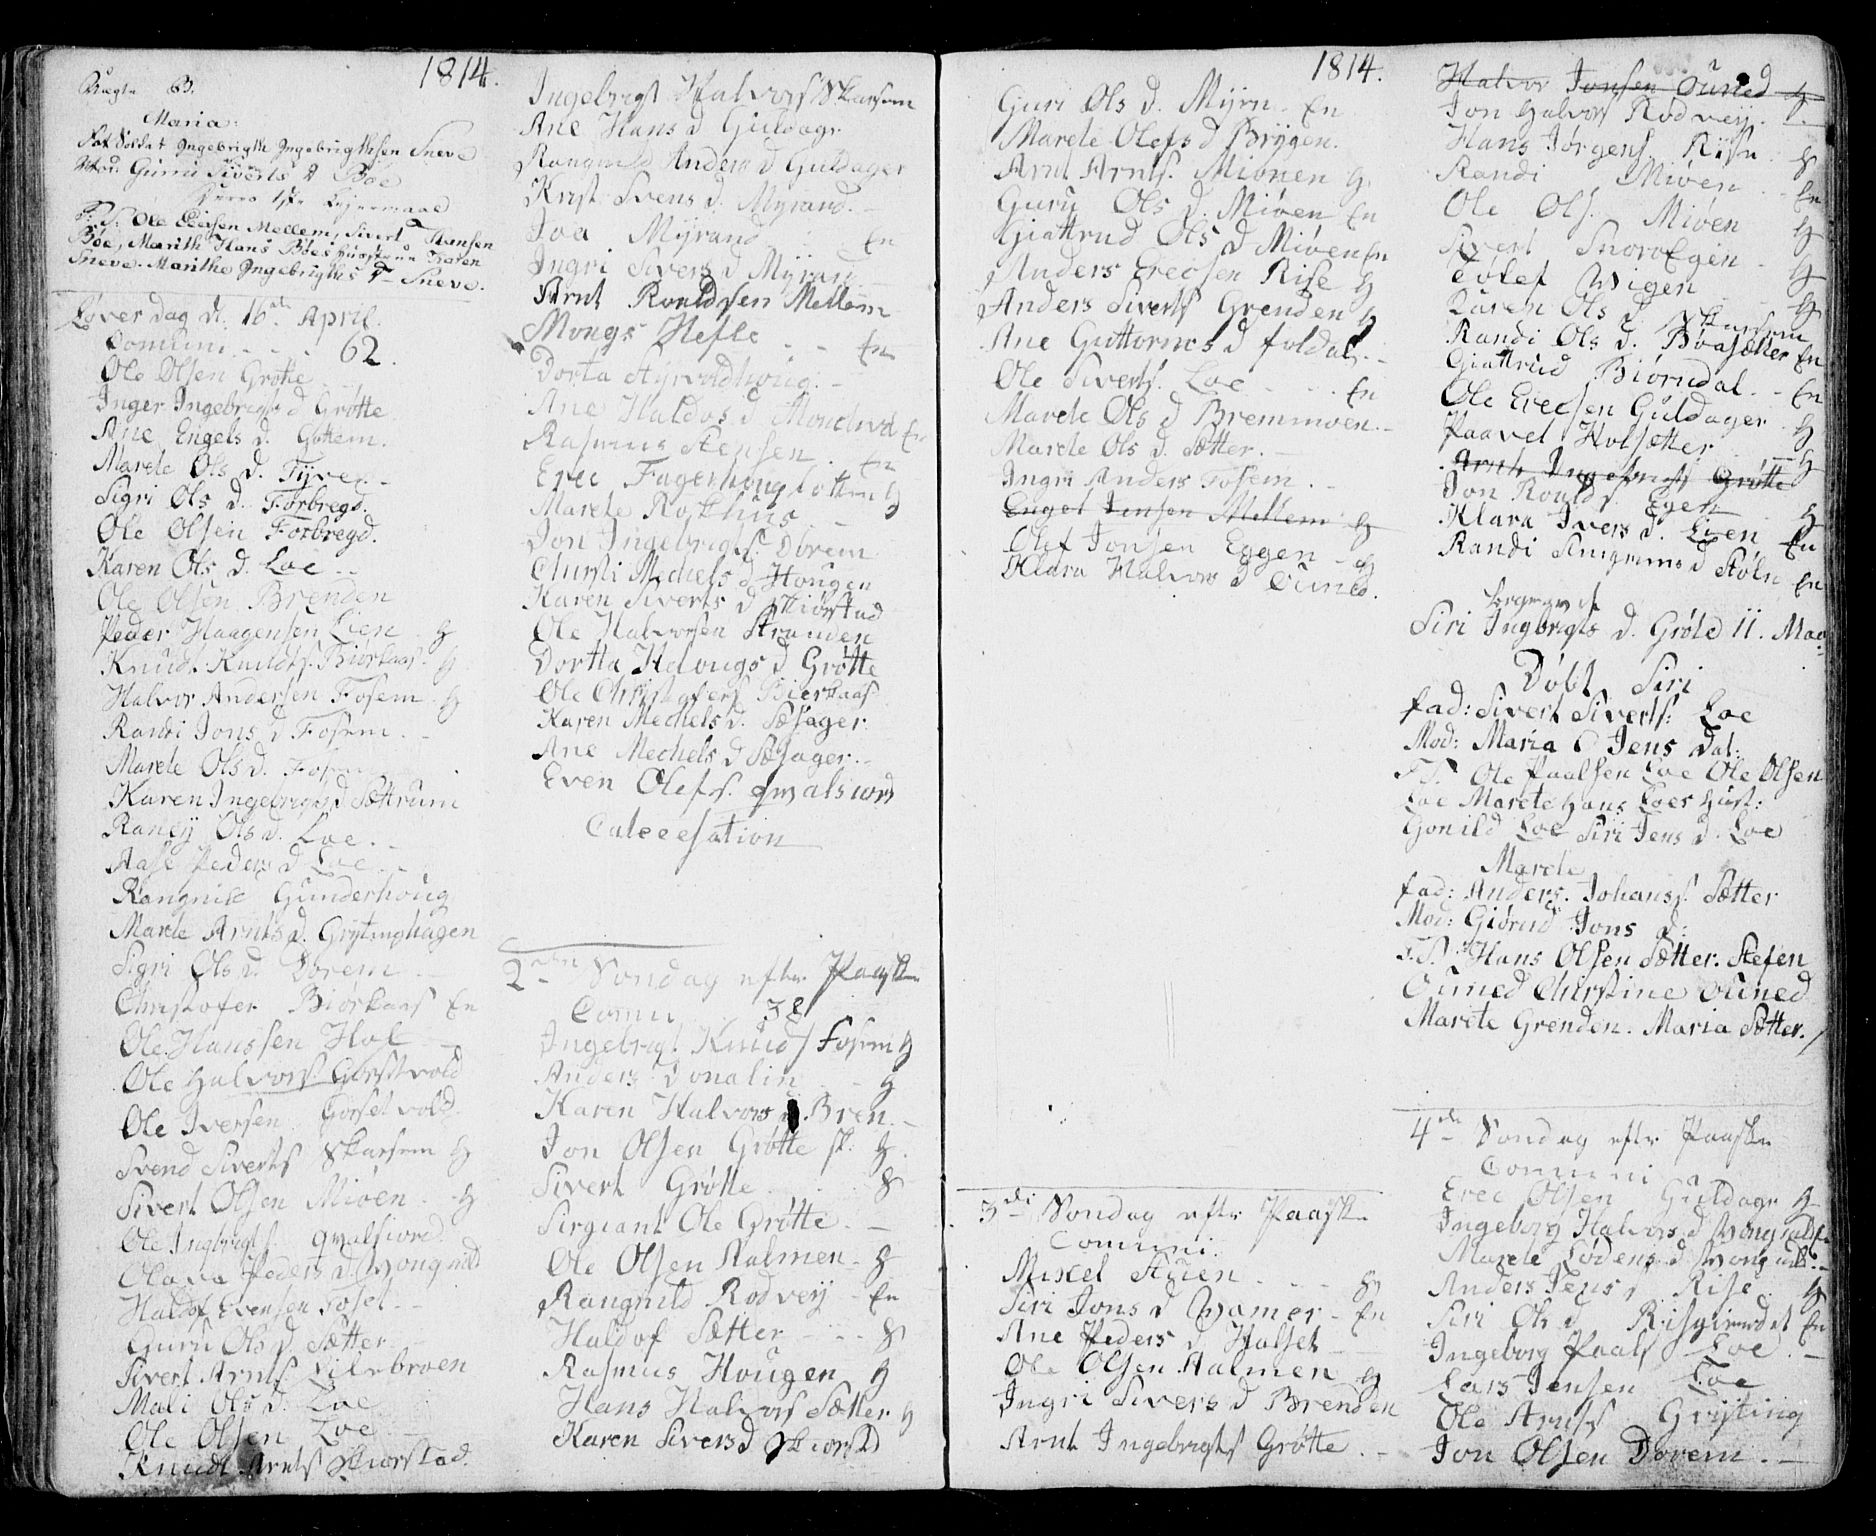 1814.
Uægte B.
Maria.
Fat Soldat Ingebrigth Ingebrigthsen Sneve
Mod. Gurru Siverts D Böe
1ste Leiermaal
F: T: Ole Ericsen Mellem, Sivert Hansen
Böe, Marith Hans Böes Karen
Sneve. Marithe Ingebrigths D Sneve.
Löverdag d. 16de April.
Comuni - - - 62.
Ole Olsen Grøtte
Inger Ingebrigts d Grøtte
Ane Engels d. Gottem.
Marete Ols D. Tyver -
Sigri Ols D. Forbregd.
Ole Olsen Forbregd.
Karen Ols D. Loe - -
Ole Olsen Brenden
Peder Haagensen Lien H
Knudt Knudts. Biørkaas. H
Halvor Andersen Fosem H
Randi Jons d Fosem -
Marete Ols D. Fosem
Karen Ingebrigts d Sættrum
Randy Ols D. Loe - -
Aase Peders d Loe
Rangnild Gunderhoug
Marte Arnts d. Grytinghagen
Sigri Ols D. Dorem -
Christofer Biørkaas En
Ole Hanssen Hol -
Ole Halvorss Gorsetvold
Ole Iversen Gorsetvold
Svend Siverts Skarsem H
Sivert Olsen Miöen - H
Ole Ingbrigts.
Olava Peders d Wongnild
Haldof Evensen Foset - -
Guru Ols D. Sætter -
Sivert Arnts Litlebroen
Mali Ols D. Loe
Ole Olsen Loe -
Knudt Arnts Skiorstad.
Ingebrigt Halvors Skarsem
Ane Hans d Guldagr
Rangnild Anders d Guldager
Krist Svens d. Myrand. -
Joa Myrand En
Ingri Sivers d Myran
Arnt Rouldsen Mellem
Mongs Hefle - - En
Dorta Styrvoldhoug. -
Ane Haldos d En
Rasmus Stensen En
Erec Fagerhoug Fottem H
Marete Rokhus -
Jon Ingebrigts: Dorem
Chirsti Mechels d Hougen
Karen Siverts d Skiørstad
Ole Halvorsen Stranden
Dortta Halvougs D Grøtte
Ole Christofers Bierkaas
Karen Mechels d. Sæsager.
Ane Mechels d Sæsager. -
Even Olefs.
Cateeesation
2den Sondag eftr Paaske
Comu 38
Ingebrigt Knud Fosem H
Anders Donalin - H
Karen Halvors d Bren -
Jon Olsen Grøtte sk. H.
Sivert Grøtte H
Sirgiant Ole Grøtte. -
Ole Olsen Aalmen - H
Rangnild Rodvey - En
Haldof Sætter - - H
Rasmus Hougen H
Hans Halvors Sætter H
Karen Sivers d Skiorsted
1814.
Guri Ols d. Myrn. En
Marete Olefs d Brygen.
Arnt Arnts. Mionen H
Gury Ols d. Miöen En
Giattrud Ols d Miöen En
Anders Erecsen Rise H
Anders Siverts Grenden H
Ane Guttorms d foldal - -
Ole Siverts. Loe - - En
Marete Ols d Bremmoen. -
Marete Ols d. Sætter. -
Ingri Anders Fosem. -
Engel Jensen Mellem H
Olef Jonsen Eggen - H
Klara Halvors d Ouned.
3de Sondag eftr Paaske
Comuni.
Mikel Stuen - - - H
Siri Jons d Wamer - En
Ane Peders d Halset -
Ole Olsen Aalmen H
Ingri Sivers d Brenden
Arnt Ingebrigts Grøtte. -
Halvor Jonsen Ouned H
Jon Halvors Rodvey -
Hans Jørgens. Risn H
Randi Miöen - En
Ole Ols. Miöen H
Sivert SnorvEgen - H
Tölef Wigen - H
Karen Ols D. Skarsem
Randi Ols D. Böasætter En
Giattrud Biörndal - En
Ole Erecsen Guldager H
Paavel Holsetter - H
Arnt Ingebrigts Grøtte
Jon Rouldss Egen H
Klara Ivers D. Lien En
Randi d Stöln En
Siri Ingbrigts d. Gröte 11. Mai
Döbt Siri
fad: Sivert Siverts: Loe
Mod: Maria Jens Dat:
F. T. Ole Paalsen Loe Ole Olsen
Loe Marete Hans Loes Hust:
Gonild Loe Siri Jens d. Loe
Marete
fad: Anders. Johanss. Sætter
Mod: Giörud Jons d:
F. T. Hans Olsen Sætter. Stefen
Ouned Christine Ouned
Marete Grenden. Maria Sætter.
4de Sondag eftr Paaske
Comuni
Erec Olsen Guldagr H
Ingeborg Halvors d
Marete Lodens d
Anders Jens Rise. H
Siri Ols d En
Ingeborg Paals Loe. -
Lars Jensen Loe
Ole Arnts Gryting
Jon Olsen Dorem. -